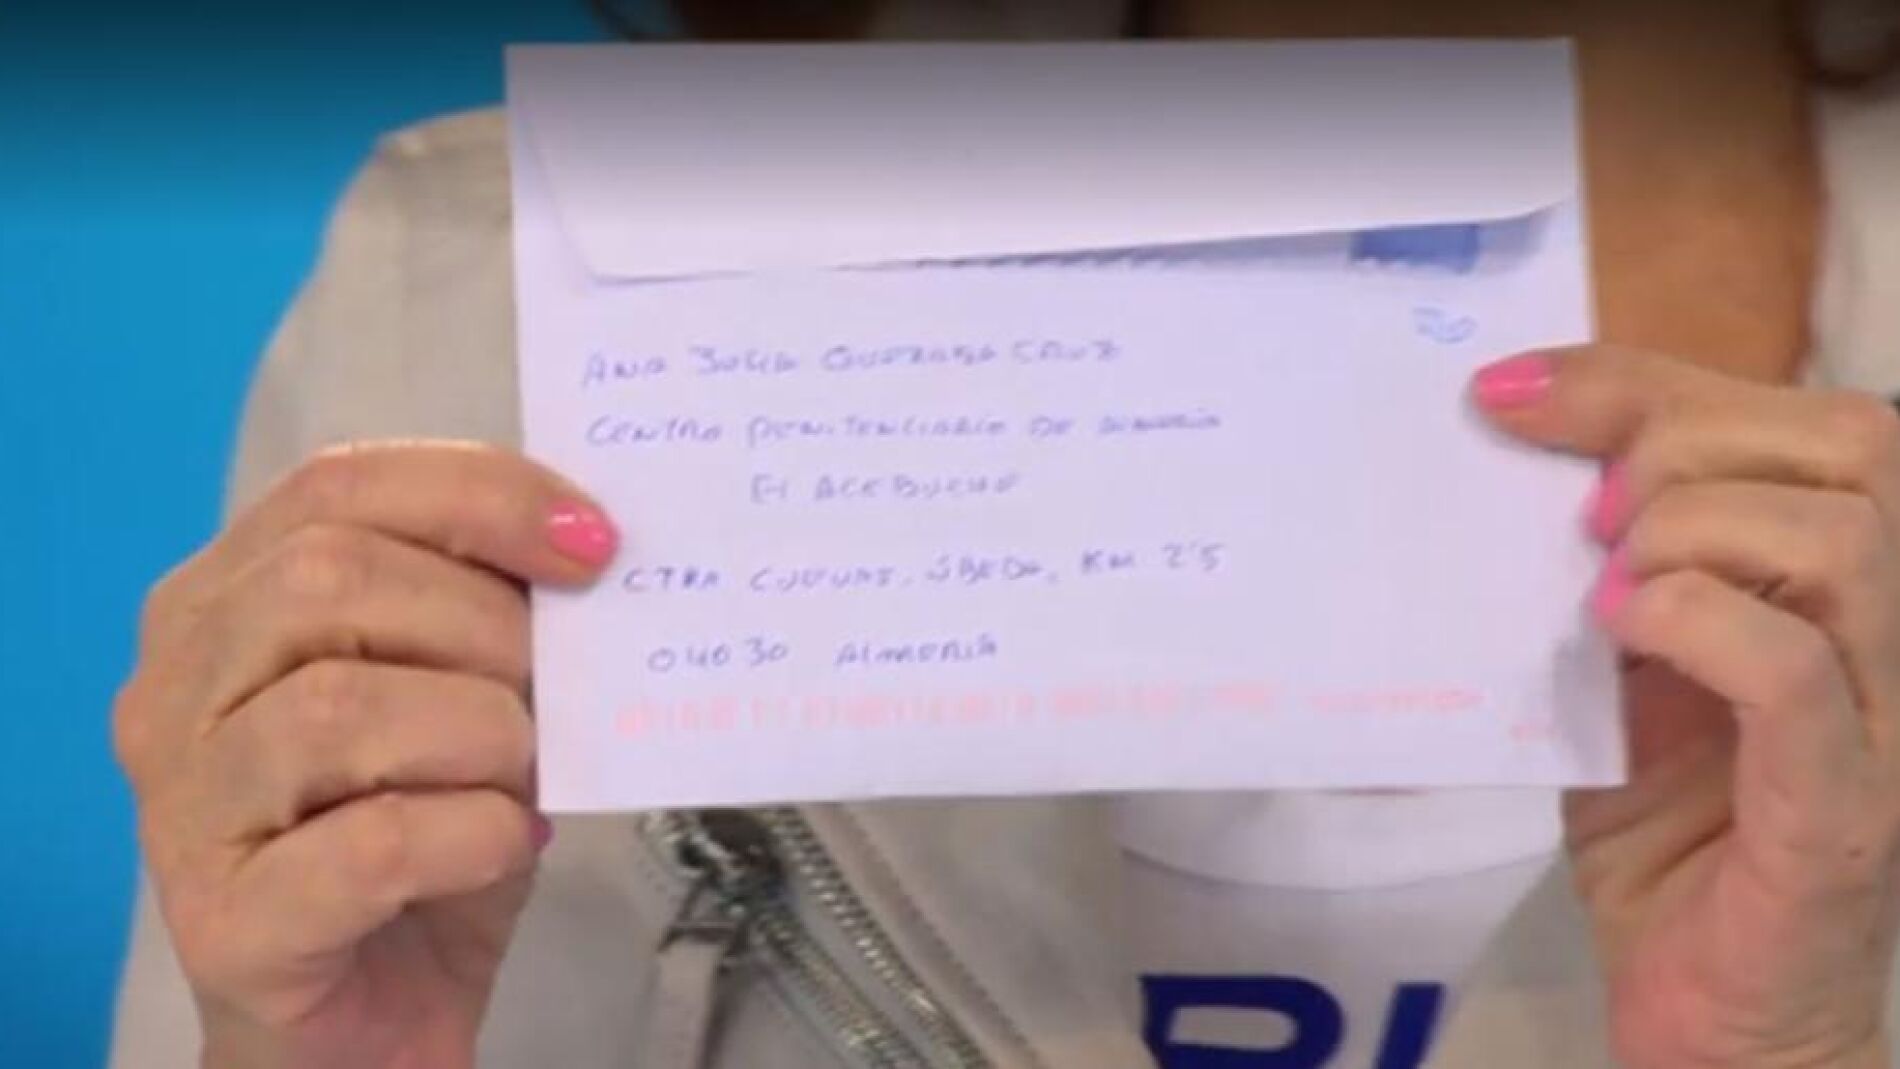 ANA JULIA QUEZADA CRUZ
CENTRO PENITENCIARIO DE ALMERÍA
El ACEBUCHE
CTRA CUEVAS. ÚBEDA, KM 2'5
04030 ALMERÍA